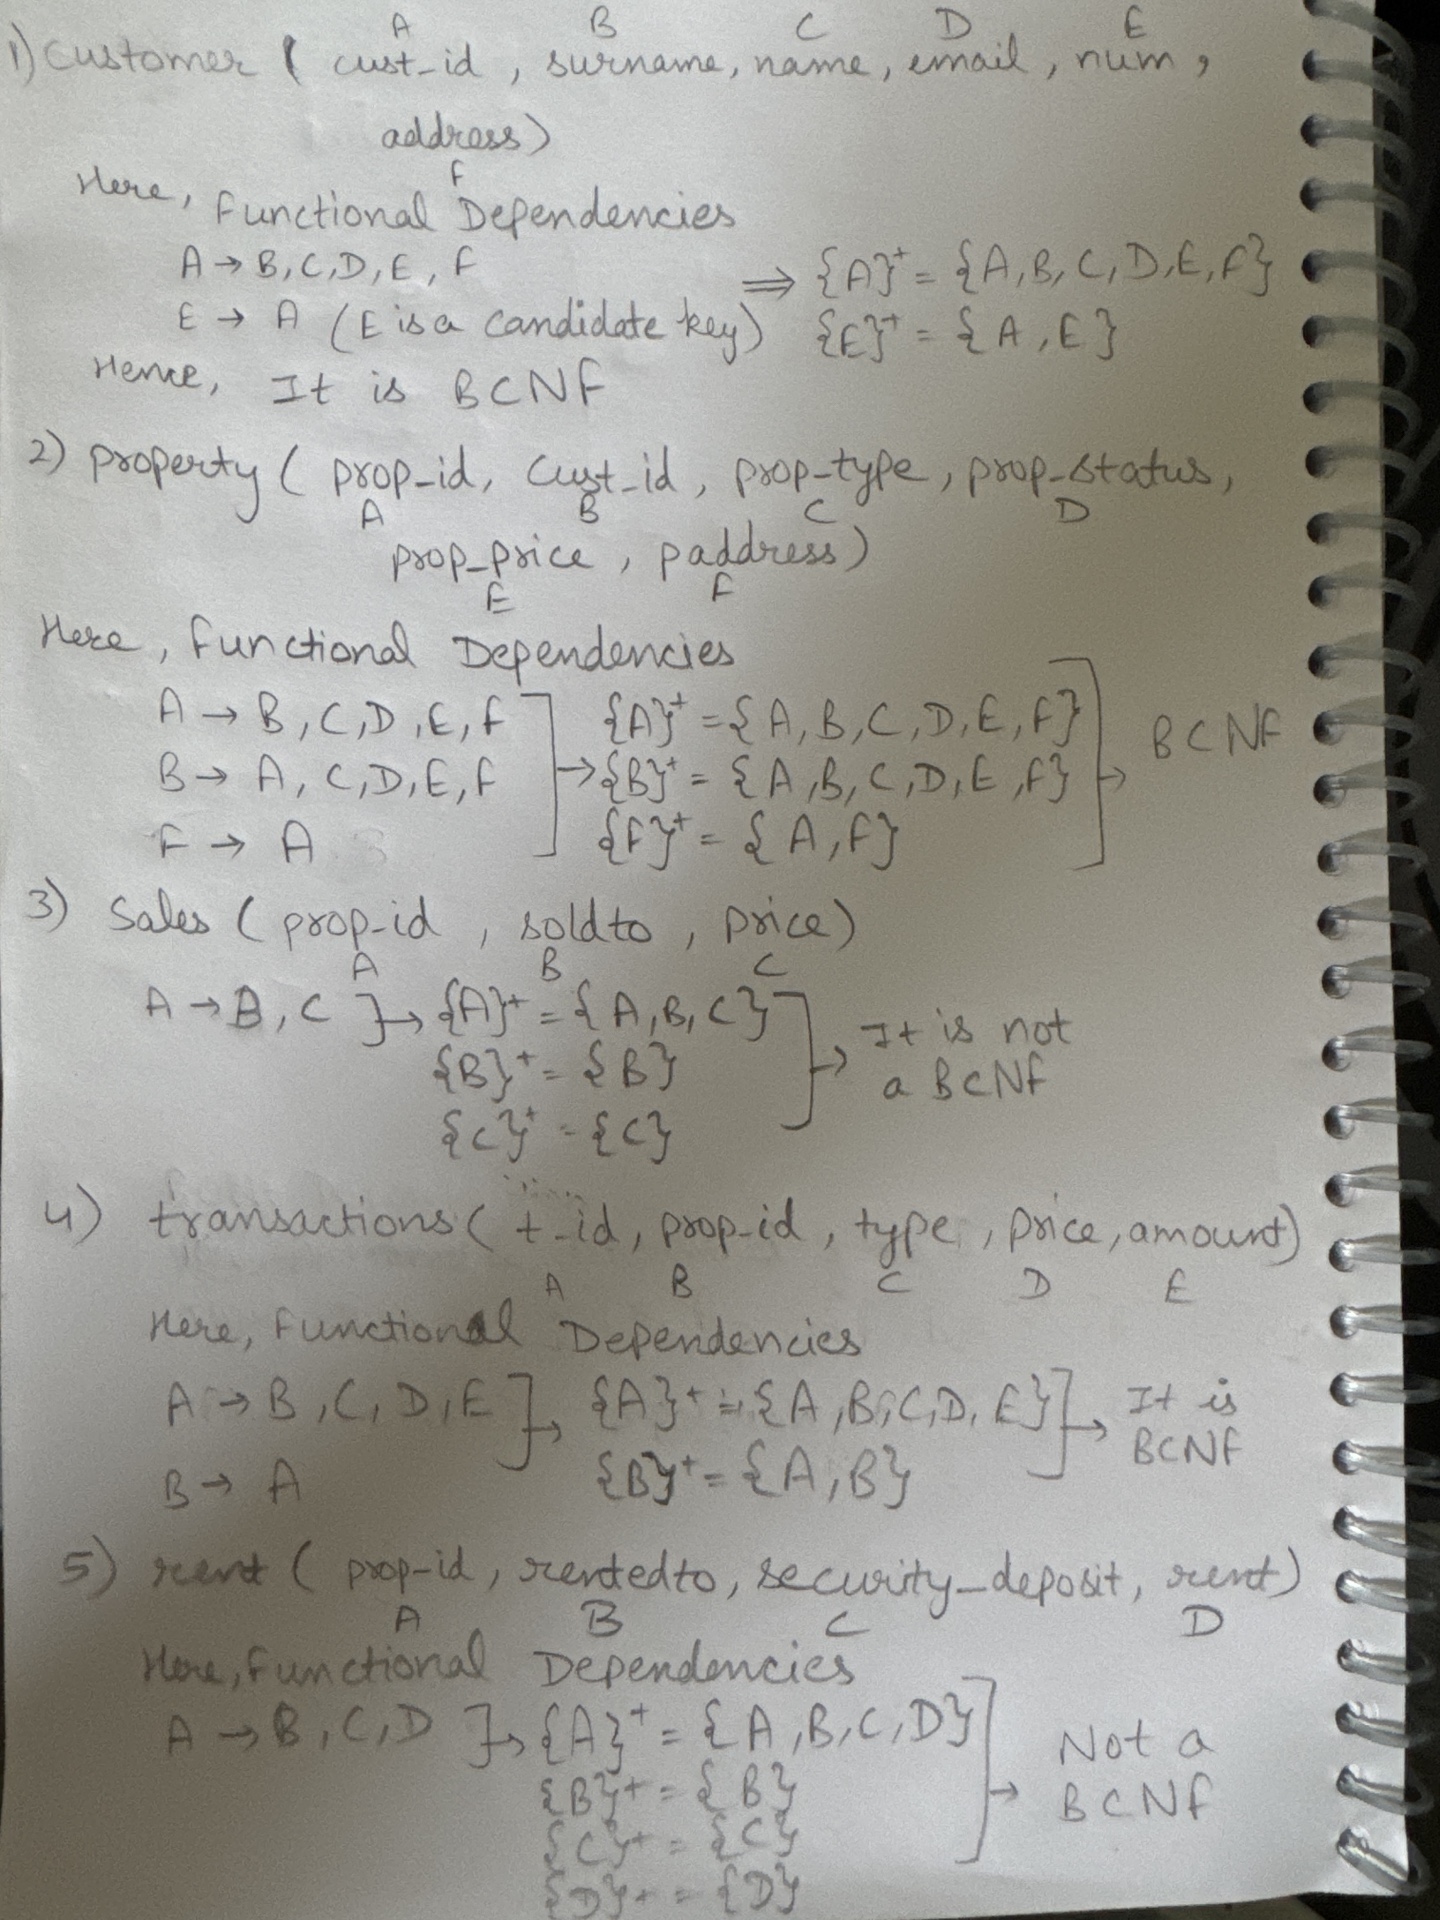 A B C D E
1) Customer ( cust_id , surname, name, email, num,
address)
F
Here, Functional Dependencies
A → B, C, D, E, F ⇒ {A}+ = {A, B, C, D, E, F}
E → A (E is a candidate key) {E}+ = {A, E}
Hence, It is BCNF
2) property ( prop_id, Cust_id, prop_type, prop_status,
A B C D
prop_price, paddress)
E F
Here, Functional Dependencies
A → B, C, D, E, F {A}+ = {A, B, C, D, E, F} BCNF
B → A, C, D, E, F → {B}+ = {A, B, C, D, E, F} →
F → A {F}+ = {A, F}
3) Sales ( prop-id , soldto , price)
A B C
A → B, C → {A}+ = {A, B, C} It is not
{B}+ = {B} → a BCNF
{C}+ = {C}
4) transactions ( t_id, prop-id, type, price, amount)
A B C D E
Here, Functional Dependencies
A → B, C, D, E → {A}+ = {A, B, C, D, E} → It is
BCNF
B → A {B}+ = {A, B}
5) rent ( prop-id, rentedto, security_deposit, rent)
A B C D
Here, Functional Dependencies
A → B, C, D → {A}+ = {A, B, C, D} Not a
{B}+ = {B} → BCNF
{C}+ = {C}
{D}+ = {D}